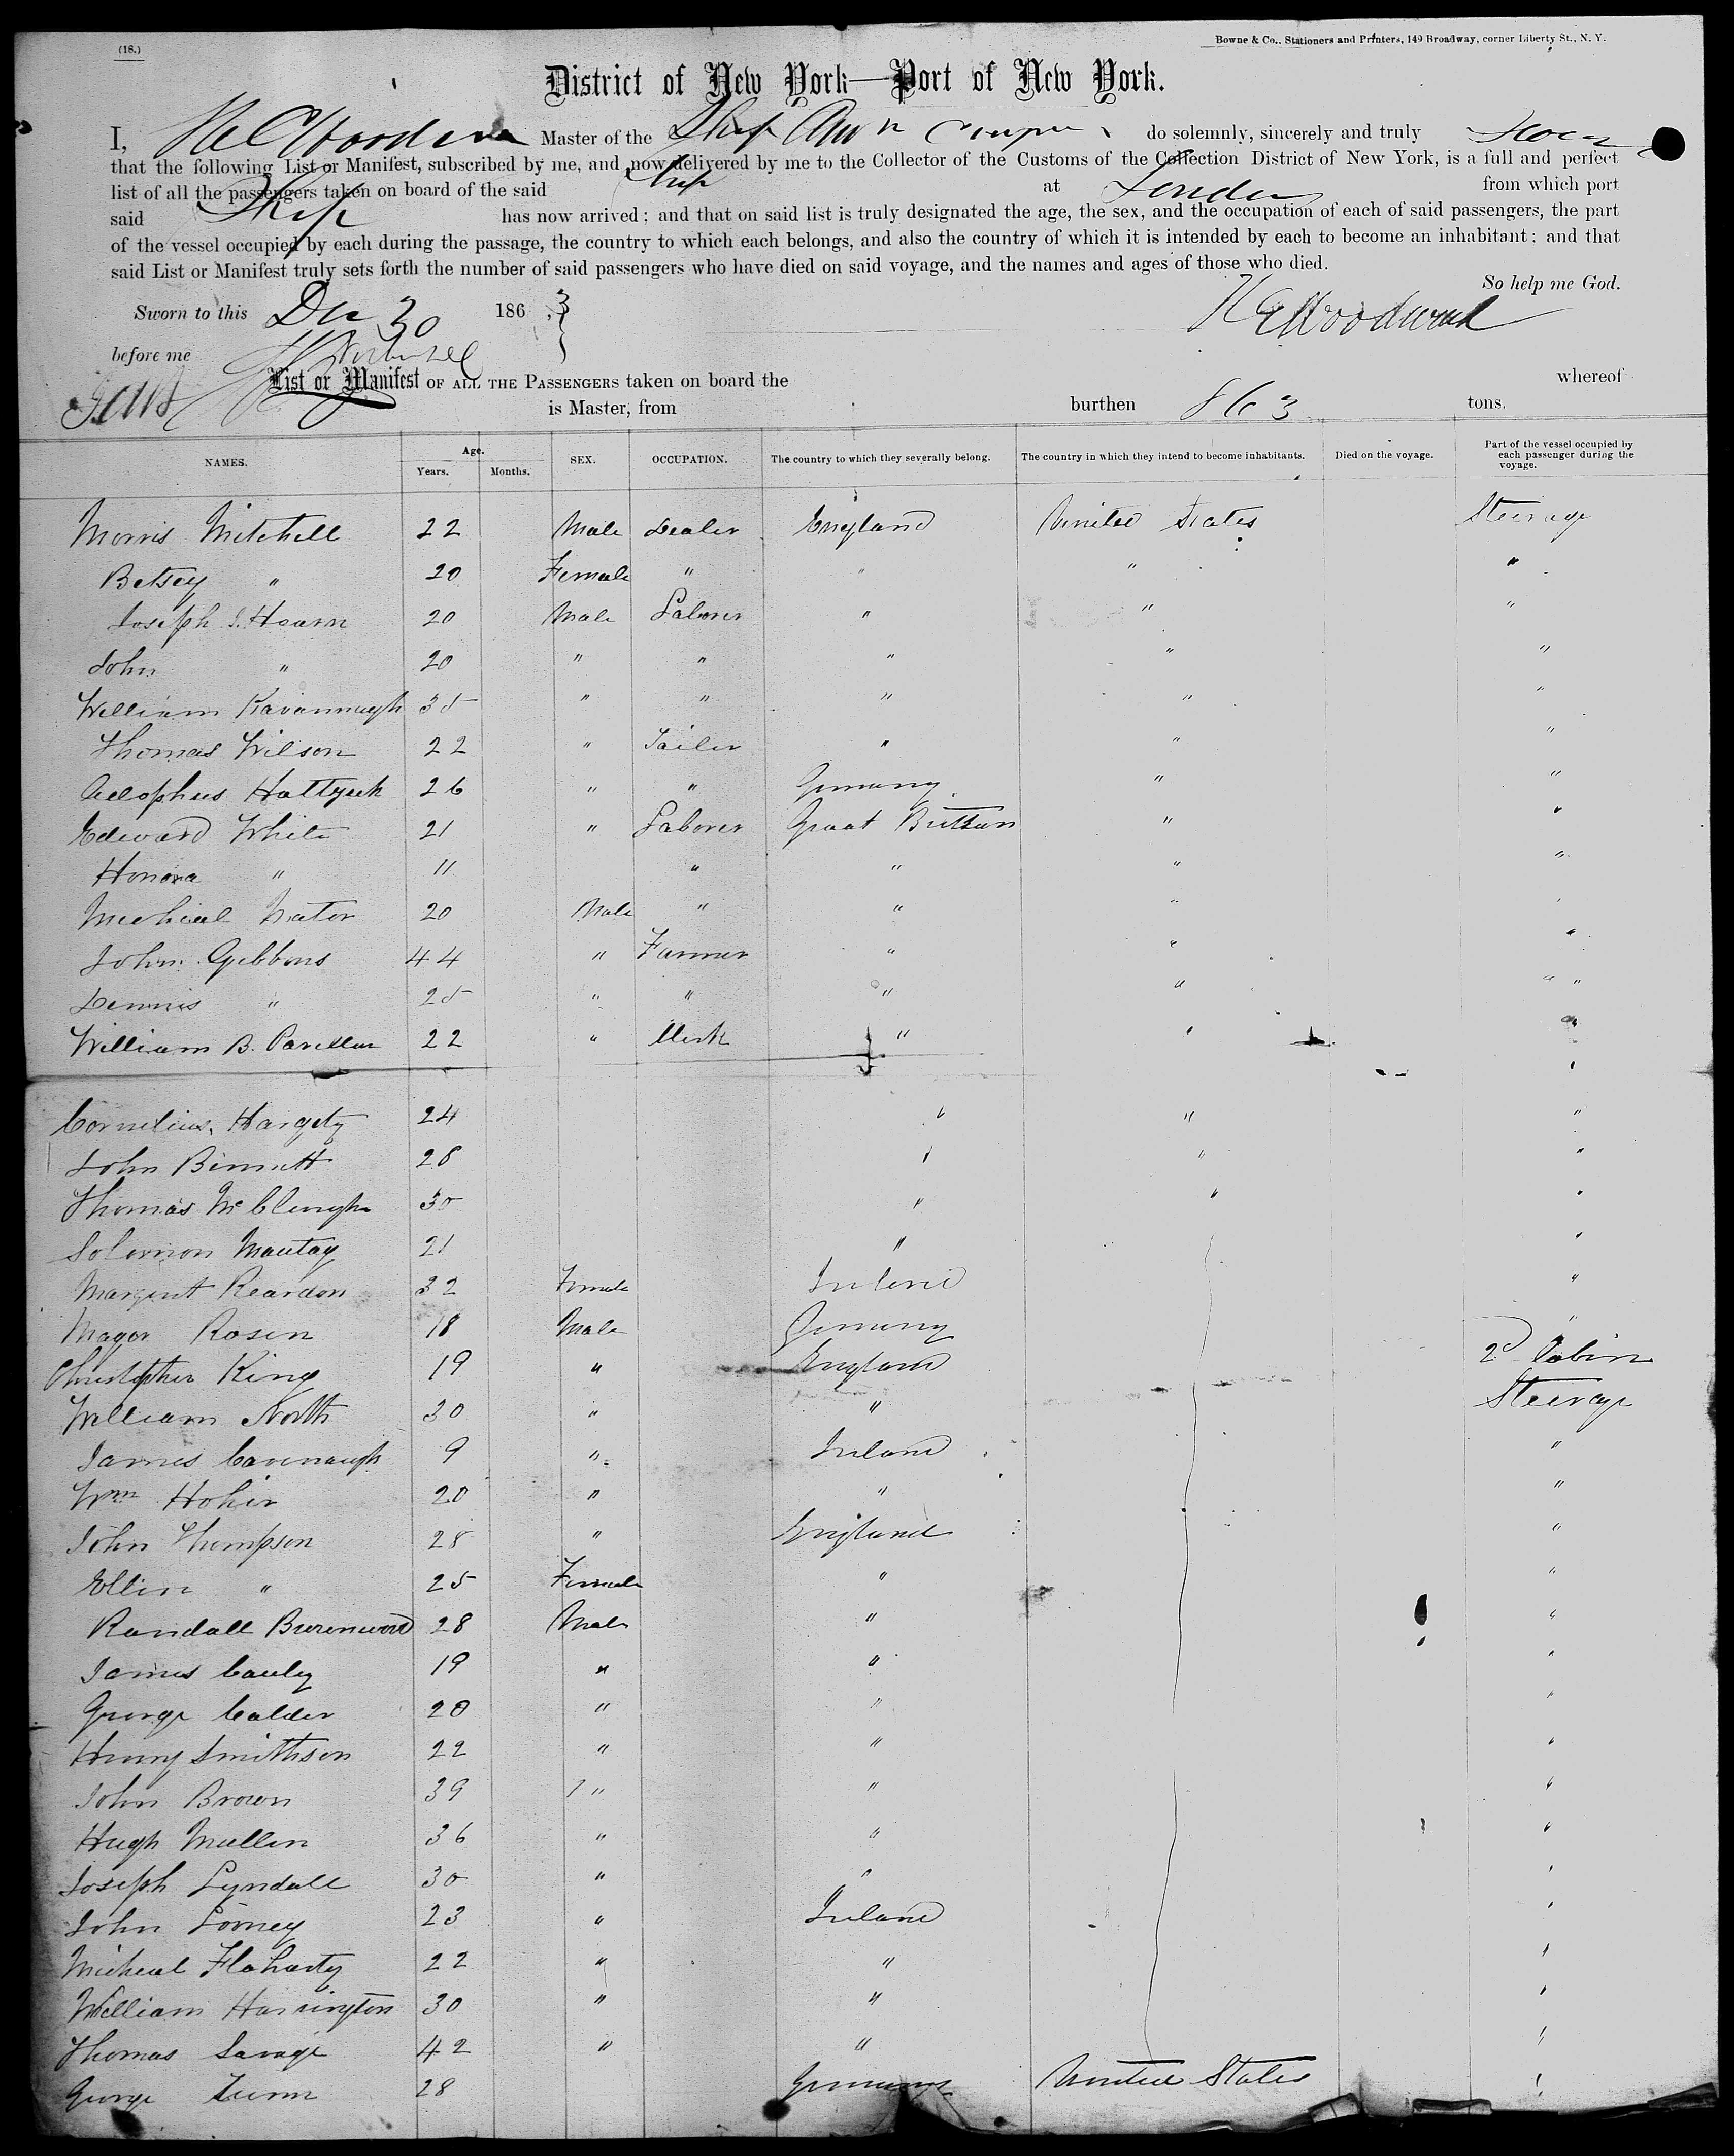 (18.)
Bowne & Co., Stationers and Printers, 149 Broadway, corner Liberty St., N. Y.
District of New York—Port of New York.
I, Master of the Ship do solemnly, sincerely and truly
that the following List or Manifest, subscribed by me, and now delivered by me to the Collector of the Customs of the Collection District of New York, is a full and perfect
list of all the passengers taken on board of the said Ship at London from which port
said Ship has now arrived; and that on said list is truly designated the age, the sex, and the occupation of each of said passengers, the part
of the vessel occupied by each during the passage, the country to which each belongs, and also the country of which it is intended by each to become an inhabitant; and that
said List or Manifest truly sets forth the number of said passengers who have died on said voyage, and the names and ages of those who died.
So help me God.
Sworn to this Dec 30 1863 Woodward
before me
List or Manifest OF ALL THE PASSENGERS taken on board the whereof
is Master, from burthen 863 tons.
NAMES. Age. Years. Months. SEX. OCCUPATION. The country to which they severally belong. The country in which they intend to become inhabitants. Died on the voyage. Part of the vessel occupied by each passenger during the voyage.
Morris Mitchell 22 Male Dealer England United States Steerage
Betsey " 20 Female " " " "
Joseph J. Hearn 20 Male Laborer " " "
John " 20 " " " " "
William Kavannaugh 35 " " " " "
Thomas Wilson 22 " Tailer " " "
26 " " Germany " "
Edward White 21 " Laborer Great Brittan " "
Honora " 11 " " " "
Micheal 20 Male " " " "
John Gibbons 44 " Farmer " " "
Dennis " 25 " " " " "
William B. 22 " Clerk " " "
Cornelius Hargety 24 " " "
John Binnett 28 " " "
Thomas McClough 30 " " "
Solomon Mautay 21 " "
Margaret Reardon 32 Female Ireland "
Mayor Rosen 18 Male Germany "
Christopher King 19 " England 2d Cabin
William North 30 " " Steerage
James Cavenaugh 9 " Ireland "
Wm Hohir 20 " " "
John Thompson 28 " England "
Ellin " 25 Female " "
Randall 28 Male " "
James Cauly 19 " " "
George Calder 20 " " "
Henry Smithson 22 " " "
John Brown 39 " " "
Hugh Mullin 36 " " "
Joseph Lyndall 30 " " "
John Tormey 23 " Ireland "
Micheal Flaharty 22 " " "
William Harrington 30 " " "
Thomas Savage 42 " " "
George 28 Germany United States "